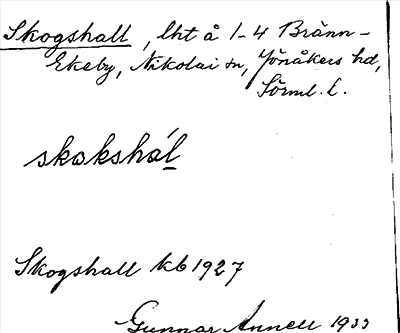 Skogshall, lht å 1-4 Bränn-
Ekeby, Nikolai sn, Jönåkers hd,
Sörml. l.
skɒkshál
Skogshall kb 1927
Gunnar Annell 1933